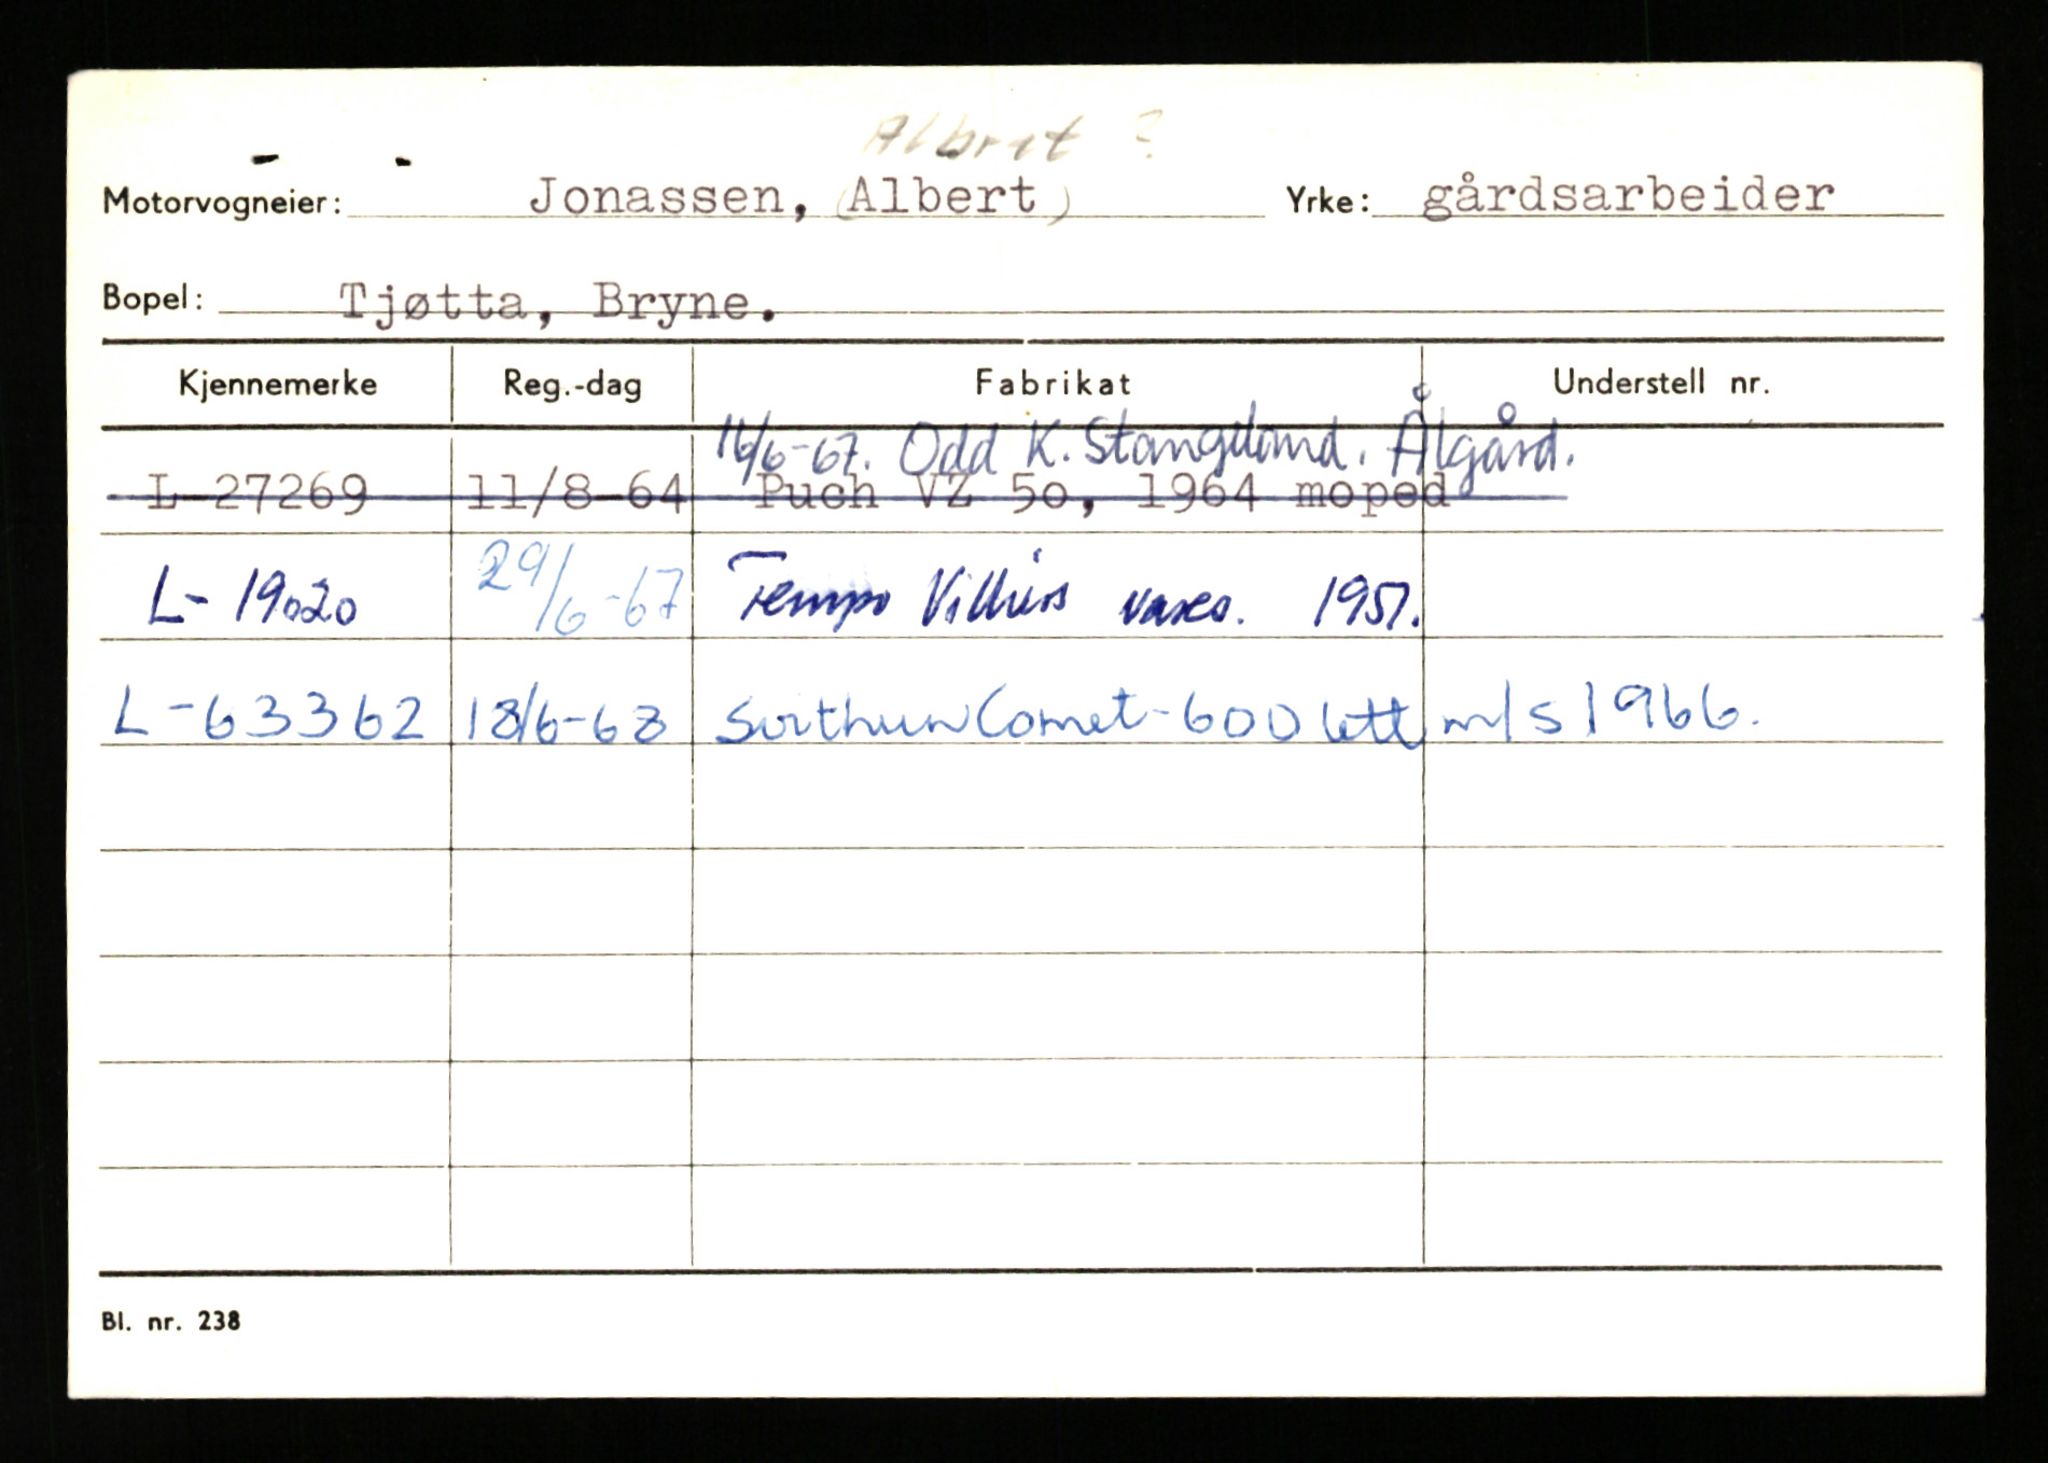 Albret ?
Motorvogneier: Jonassen, (Albert) Yrke: gårdsarbeider
Bopel: Tjøtta, Bryne.
Kjennemerke Reg.-dag Fabrikat Understell nr.
16/6-67. Odd K. Stangeland. Ålgård.
L-27269 11/8-64 Puch VZ 5o, 1964 moped
L- 19020 29/6-67 Tempo Villiers 1951.
L-63362 18/6-68 Svithun Comet-600 lett m/s 1966.
Bl. nr. 238